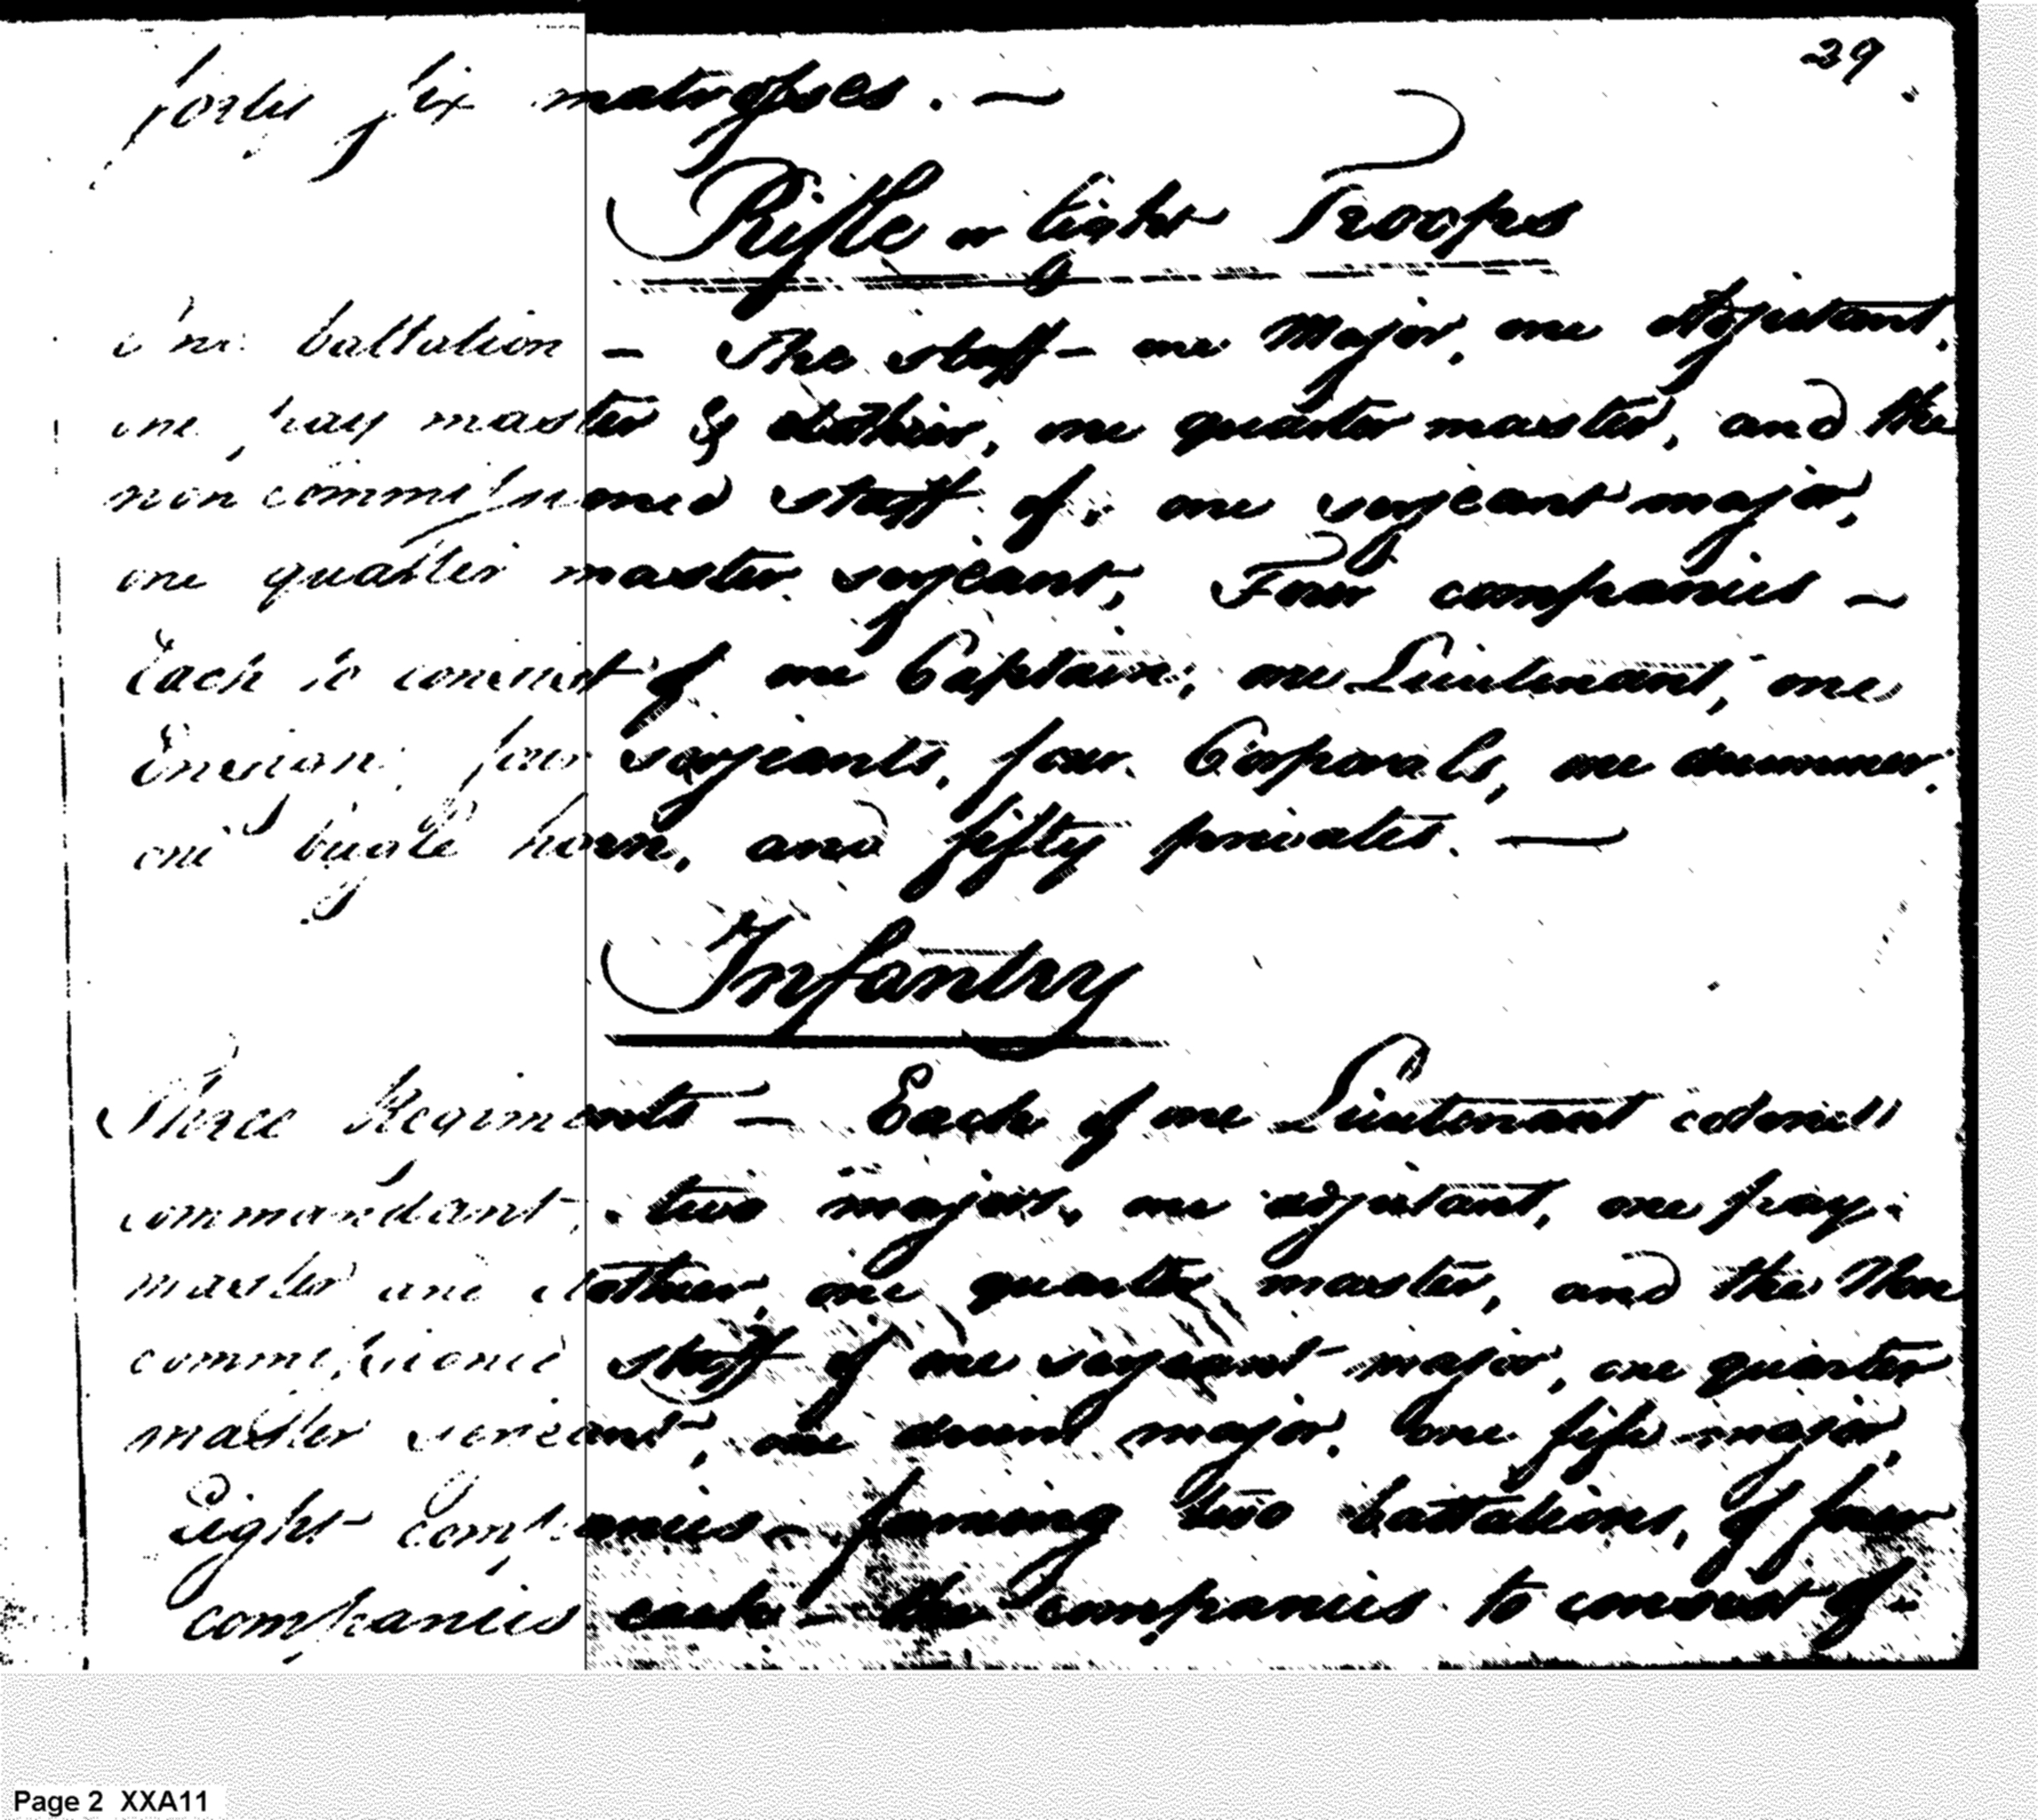 39
forty six matrosses. —
Rifle or light Troops
One battalion — The staff — one Major, one Adjutant,
one pay master & clothier, one quarter master, and the
non commissioned staff of, one serjeant major,
one quarter master serjeant, Four companies —
Each to consist of one Captain, one Lieutenant, one
Ensign, four serjeants, four Corporals, one drummer,
one bugle horn, and fifty privates. —
Infantry
Three Regiments — Each of one Lieutenant colonel
commandant, two majors, one adjutant, one pay
master and clothier, one quarter master, and the Non
commissioned staff of one serjeant major, one quarter
master serjeant, one drum major, one fife major,
Eight companies — forming two battalions, of four
companies each — the companies to consist of
Page 2 XXA11